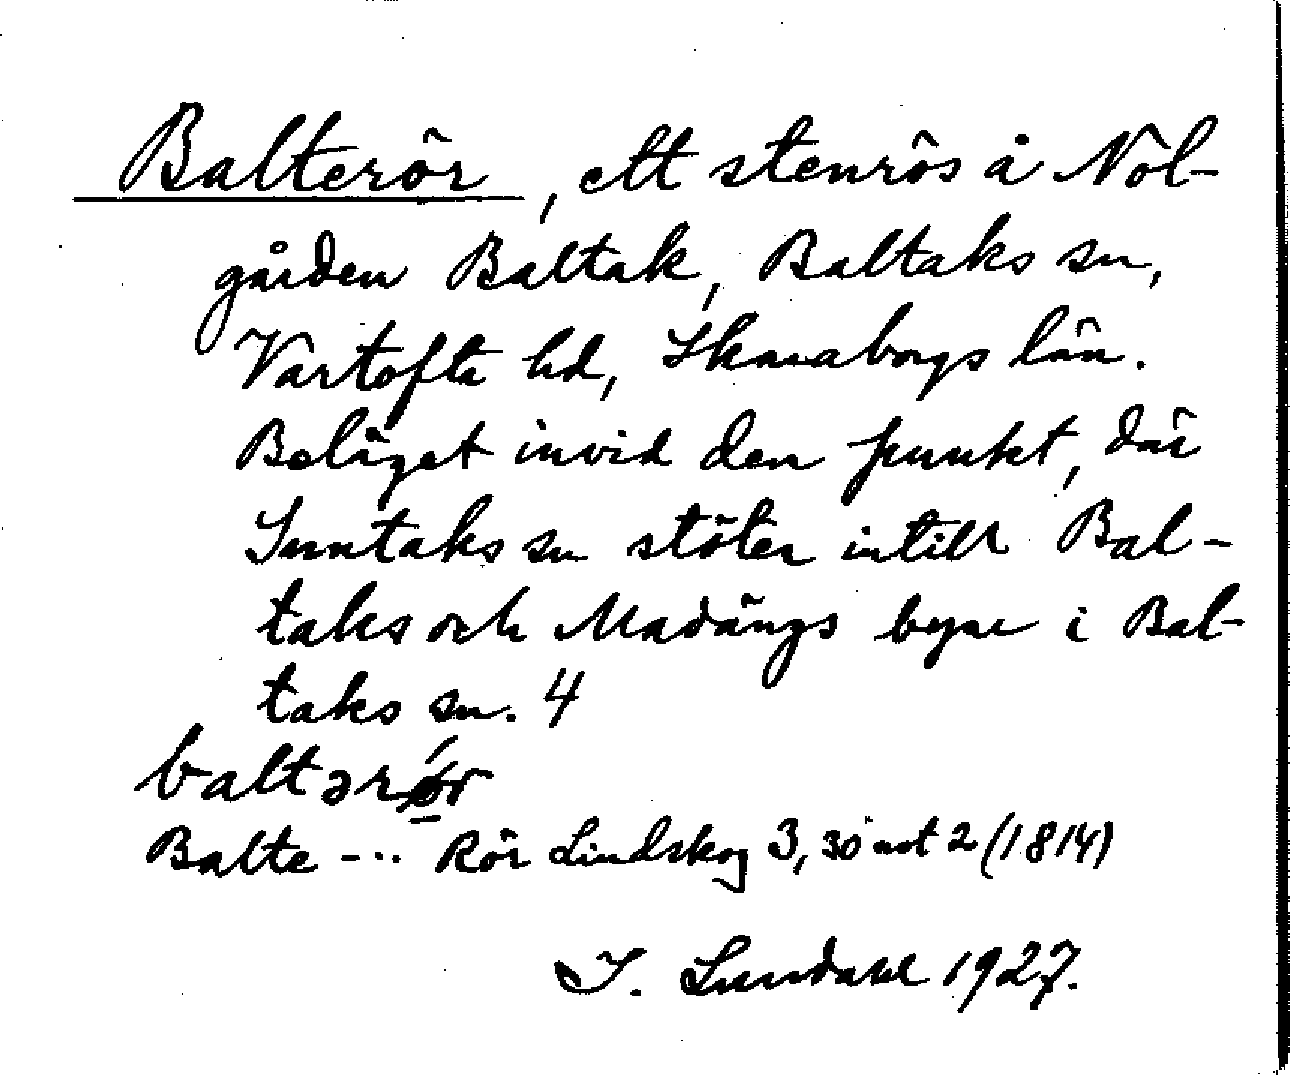 Balterör, ett stenrös å Nol-
gården Baltak, Baltaks sn,
Vartofta hd, Skaraborgs län.
Beläget invid den punkt, där
Suntaks sn stöter intill Bal-
taks och Madängs byar i Bal-
taks sn. 4
baltər
Balte --- Rör Lindskog 3, 30 not 2 (1814)
I. Lundahl 1927.